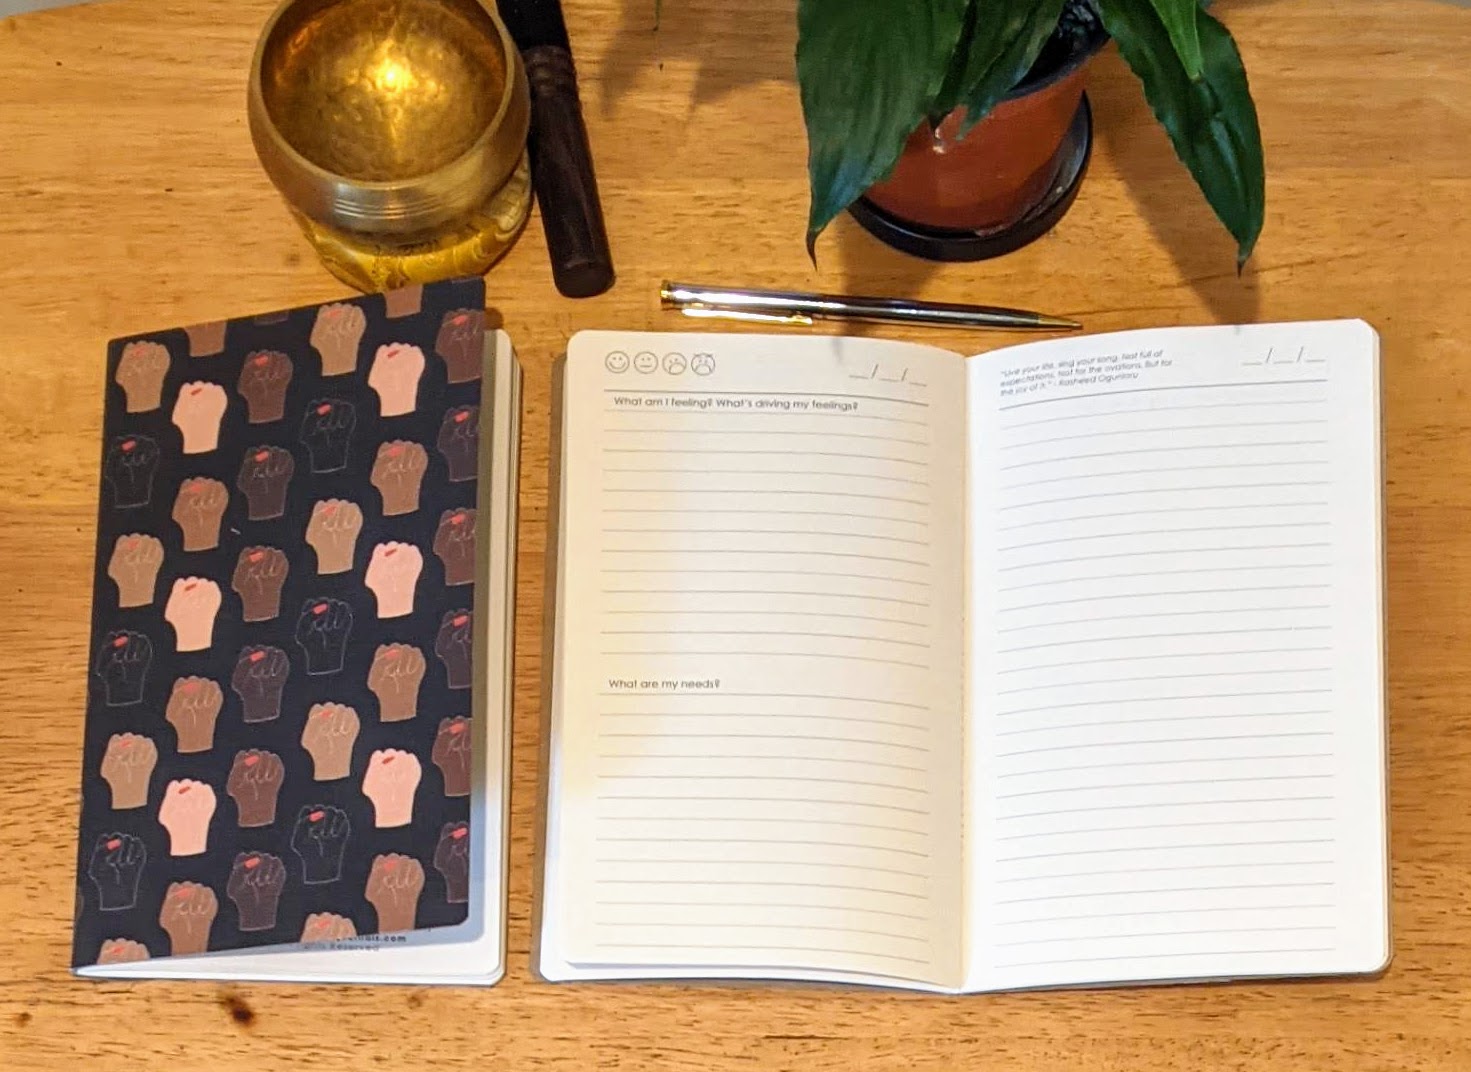 __/__/__
What am I feeling? What's driving my feelings?
What are my needs?
"Live your life, sing your song. Not full of
expectations. Not for the ovations. But for
the joy of it." - Rasheed Ogunlaru
__/__/__
.com
Reserved